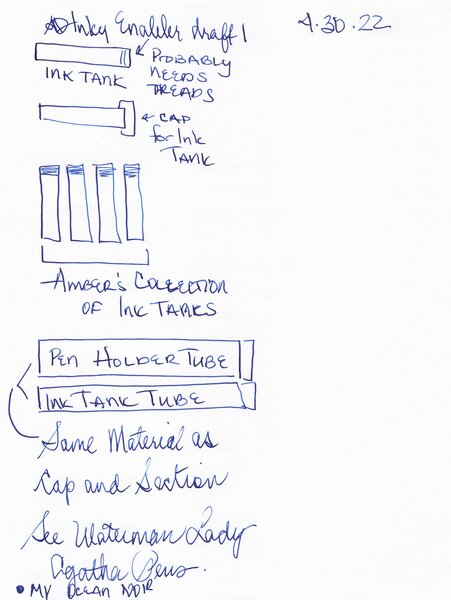 Inky Enabler draft 1
4.30.22
INK TANK
PROBABLY
NEEDS
TREADS
CAP
for Ink
TANK
AMBER'S COLLECTION
OF INK TANKS
PEN HOLDER TUBE
INK TANK TUBE
Same Material as
Cap and Section
See Waterman Lady
Agatha Pens.
• MY OCEAN NOIR